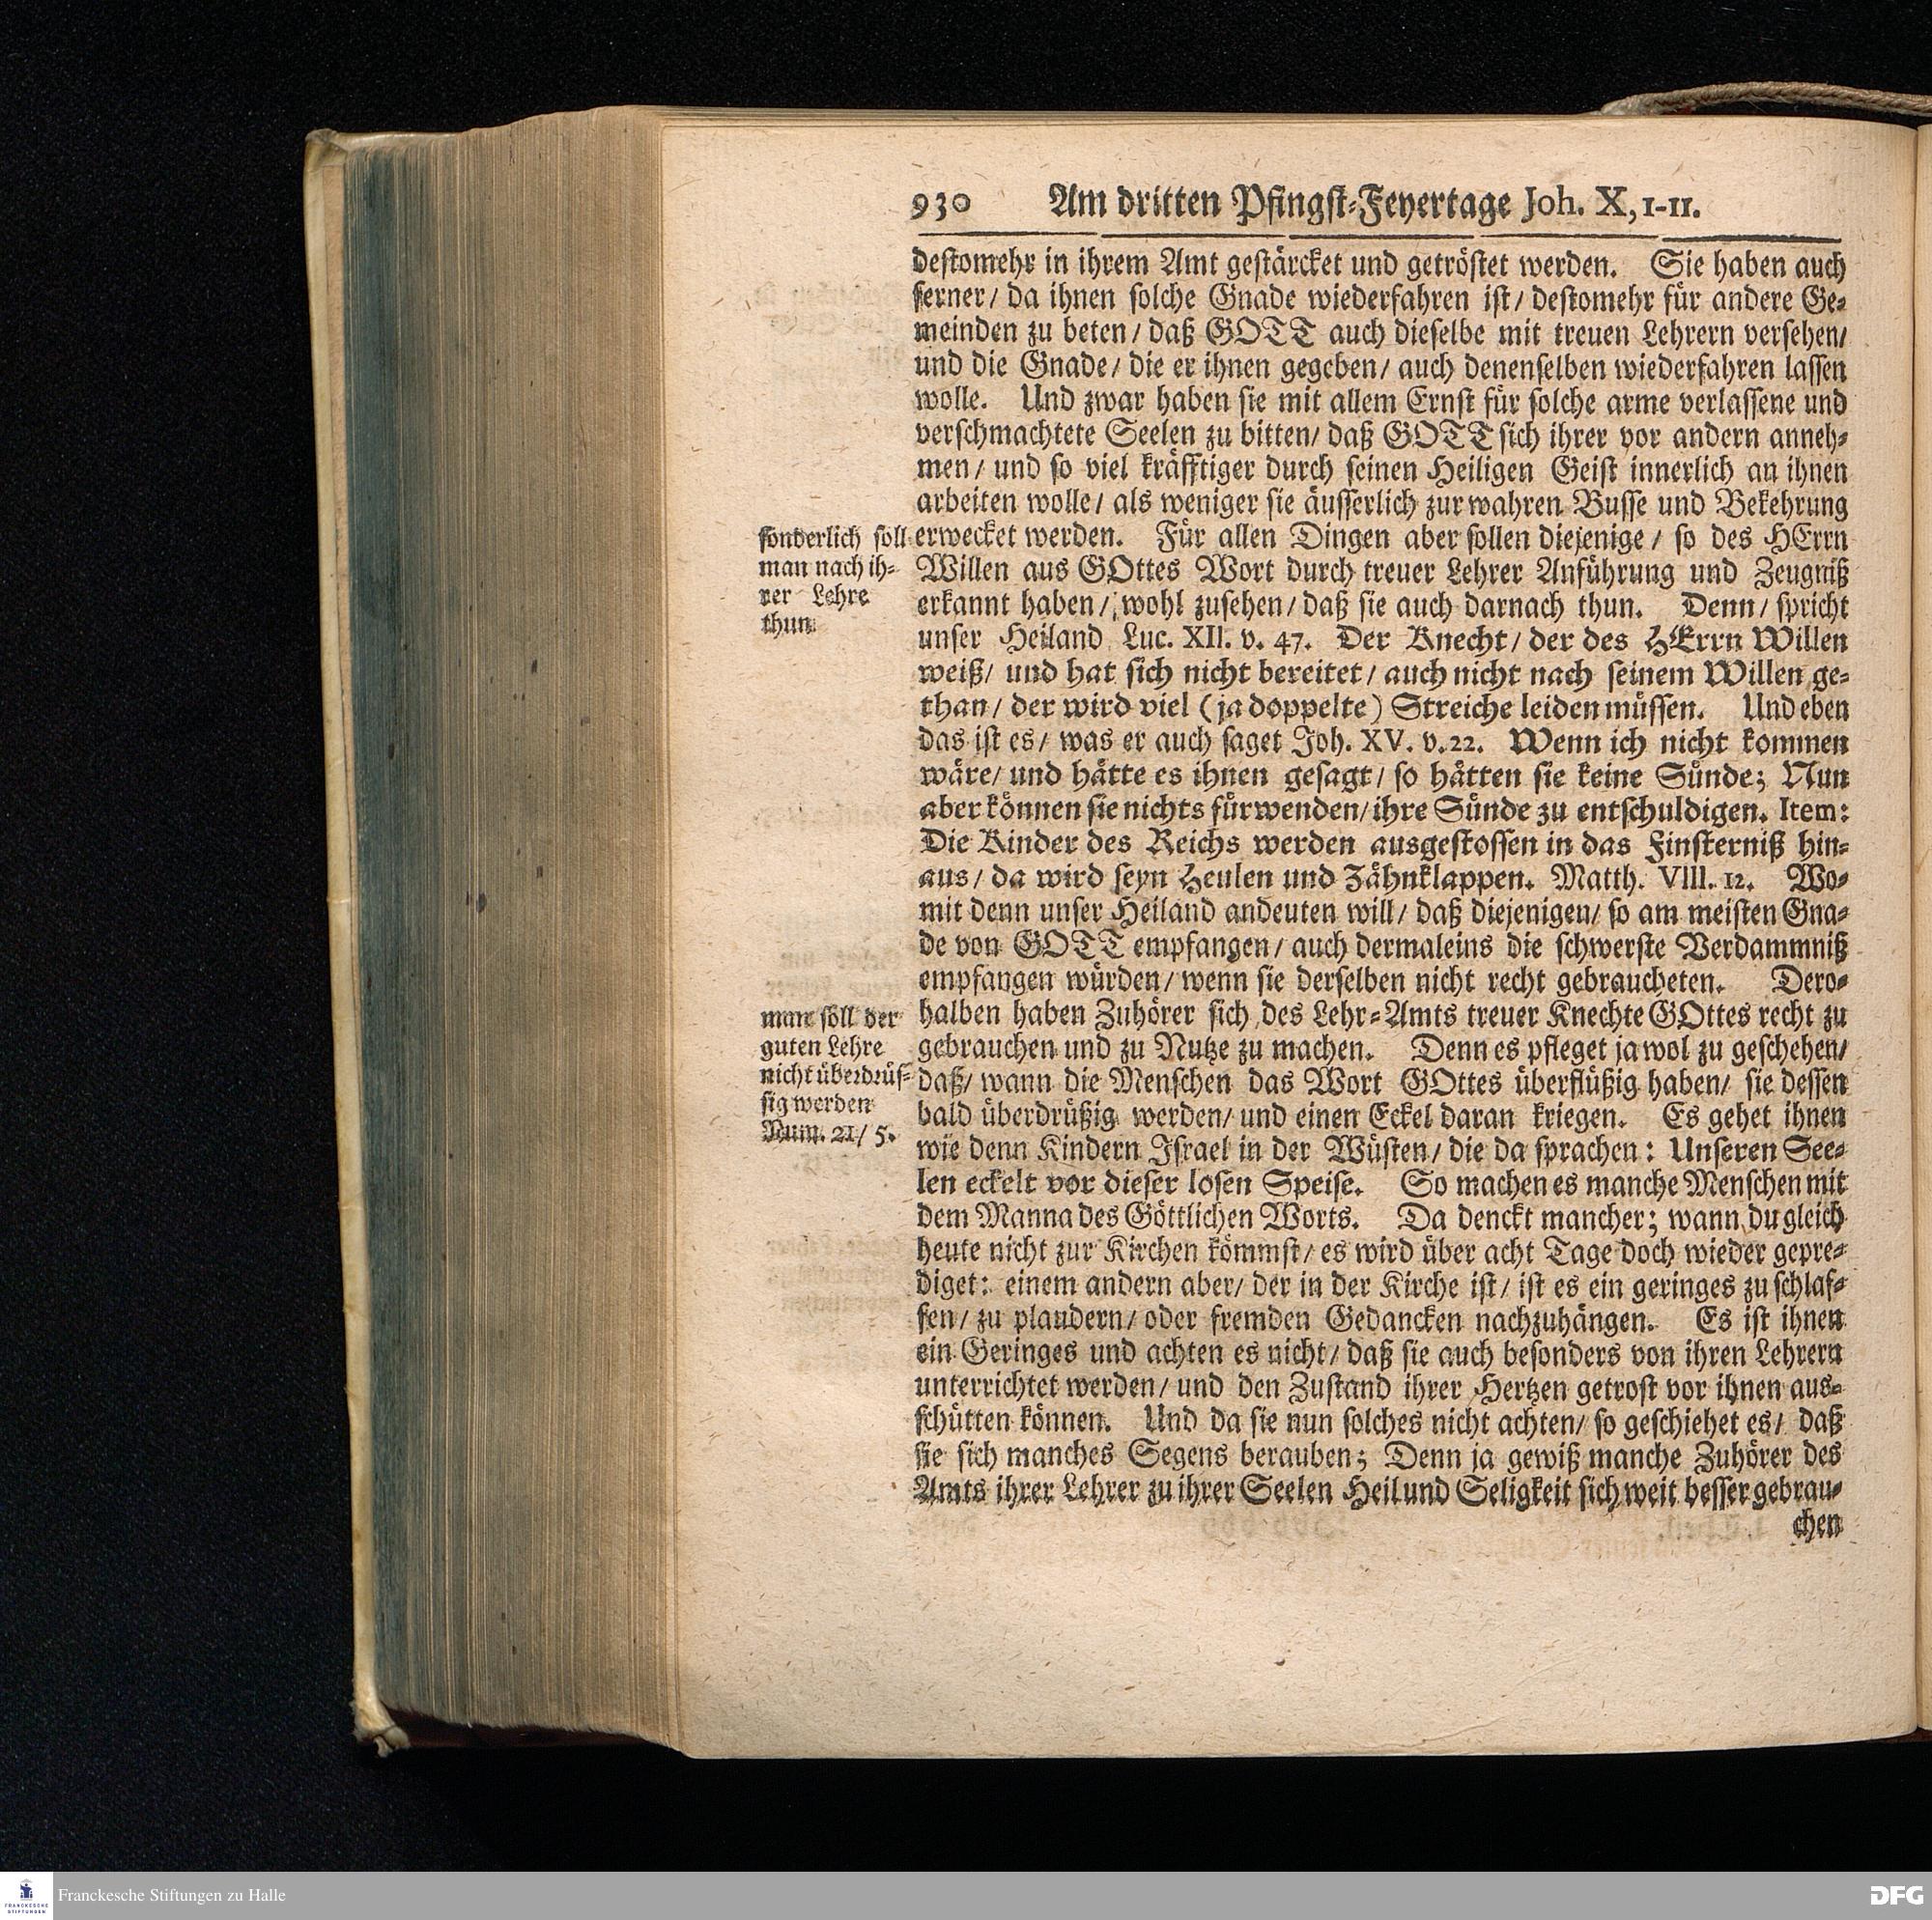 930 Am dritten Pfingst-Feyertage Joh. X, 1-11.
destomehr in ihrem Amt gestärcket und getröstet werden. Sie haben auch
ferner/ da ihnen solche Gnade wiederfahren ist/ destomehr für andere Ge-
meinden zu beten/ daß GOTT auch dieselbe mit treuen Lehrern versehen/
und die Gnade/ die er ihnen gegeben/ auch denenselben wiederfahren lassen
wolle. Und zwar haben sie mit allem Ernst für solche arme verlassene und
verschmachtete Seelen zu bitten/ daß GOTT sich ihrer vor andern anneh-
men/ und so viel kräfftiger durch seinen Heiligen Geist innerlich an ihnen
arbeiten wolle/ als weniger sie äusserlich zur wahren Busse und Bekehrung
erwecket werden. Für allen Dingen aber sollen diejenige/ so des HErrn
Willen aus GOttes Wort durch treuer Lehrer Anführung und Zeugniß
erkannt haben/ wohl zusehen/ daß sie auch darnach thun. Denn/ spricht
unser Heiland Luc. XII. v. 47. Der Knecht/ der des HErrn Willen
weiß/ und hat sich nicht bereitet/ auch nicht nach seinem Willen ge-
than/ der wird viel (ja doppelte) Streiche leiden müssen. Und eben
das ist es/ was er auch saget Joh. XV. v. 22. Wenn ich nicht kommen
wäre/ und hätte es ihnen gesagt/ so hätten sie keine Sünde; Nun
aber können sie nichts fürwenden/ ihre Sünde zu entschuldigen. Item:
Die Kinder des Reichs werden ausgestossen in das Finsterniß hin-
aus/ da wird seyn Heulen und Zähnklappen. Matth. VIII. 12. Wo-
mit denn unser Heiland andeuten will/ daß diejenigen/ so am meisten Gna-
de von GOTT empfangen/ auch dermaleins die schwerste Verdammniß
empfangen würden/ wenn sie derselben nicht recht gebraucheten. Dero-
halben haben Zuhörer sich des Lehr-Amts treuer Knechte GOttes recht zu
gebrauchen und zu Nutze zu machen. Denn es pfleget ja wol zu geschehen/
daß/ wann die Menschen das Wort GOttes überflüßig haben/ sie dessen
bald überdrüßig werden/ und einen Eckel daran kriegen. Es gehet ihnen
wie denn Kindern Israel in der Wüsten/ die da sprachen: Unseren See-
len eckelt vor dieser losen Speise. So machen es manche Menschen mit
dem Manna des Göttlichen Worts. Da denckt mancher; wann du gleich
heute nicht zur Kirchen kömmst/ es wird über acht Tage doch wieder gepre-
diget: einem andern aber/ der in der Kirche ist/ ist es ein geringes zu schlaf-
fen/ zu plaudern/ oder fremden Gedancken nachzuhängen. Es ist ihnen
ein Geringes und achten es nicht/ daß sie auch besonders von ihren Lehrern
unterrichtet werden/ und den Zustand ihrer Hertzen getrost vor ihnen aus-
schütten können. Und da sie nun solches nicht achten/ so geschiehet es/ daß
sie sich manches Segens berauben; Denn ja gewiß manche Zuhörer des
Amts ihrer Lehrer zu ihrer Seelen Heil und Seligkeit sich weit besser gebrau-
chen
sonderlich soll
man nach ih-
rer Lehre
thun
man soll der
guten Lehre
nicht überdrüs-
sig werden
Num. 21/ 5.
Franckesche Stiftungen zu Halle
FRANCKESCHE
STIFTUNGEN
DFG